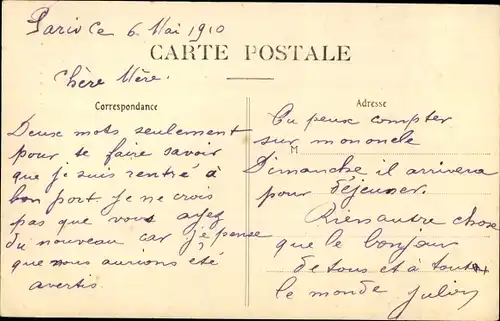 Paris Ce 6 Mai 1910
CARTE POSTALE
Chère Mère.
Correspondance
Deux mots seulement
pour te faire savoir
que je suis rentré à
bon port. je ne crois
pas que vous ayez
du nouveau car je pense
que nous aurions été
avertis.
Adresse
Tu peux compter
sur mononcle
M
Dimanche il arrivera
pour déjeuner.
Rien autre chose
que le bonjour
de tous et à toute
le monde Julien